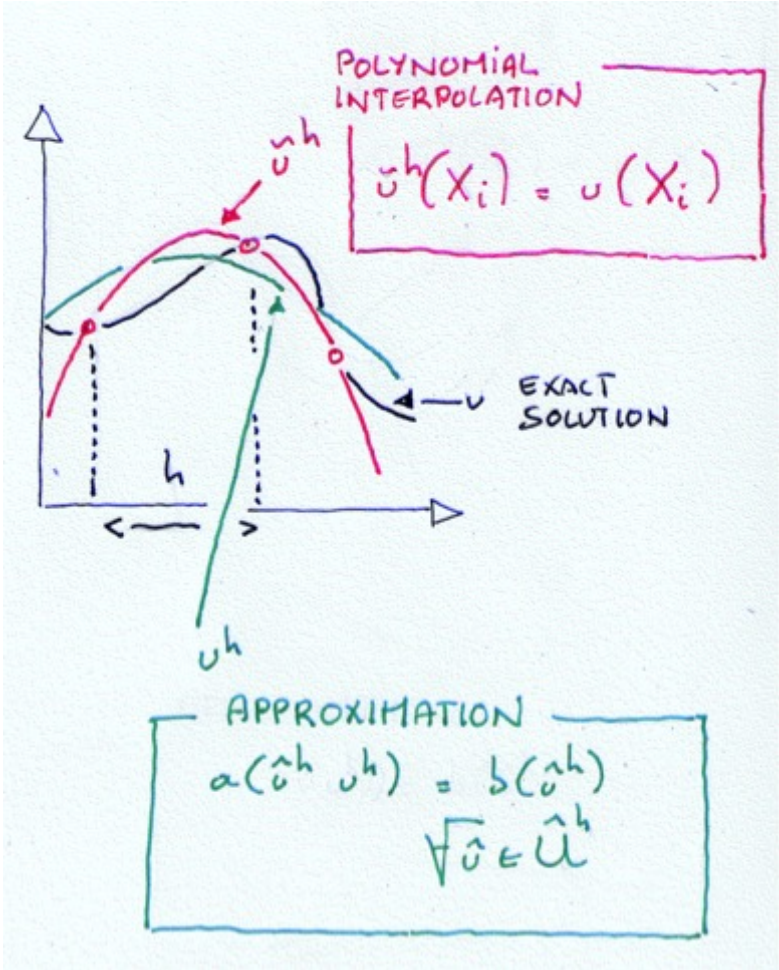 POLYNOMIAL
INTERPOLATION
ũʰ
ũʰ(Xᵢ) = u(Xᵢ)
u EXACT
SOLUTION
h
uʰ
APPROXIMATION
a(ûʰ uʰ) = b(ûʰ)
∀ û ∈ Ûʰ